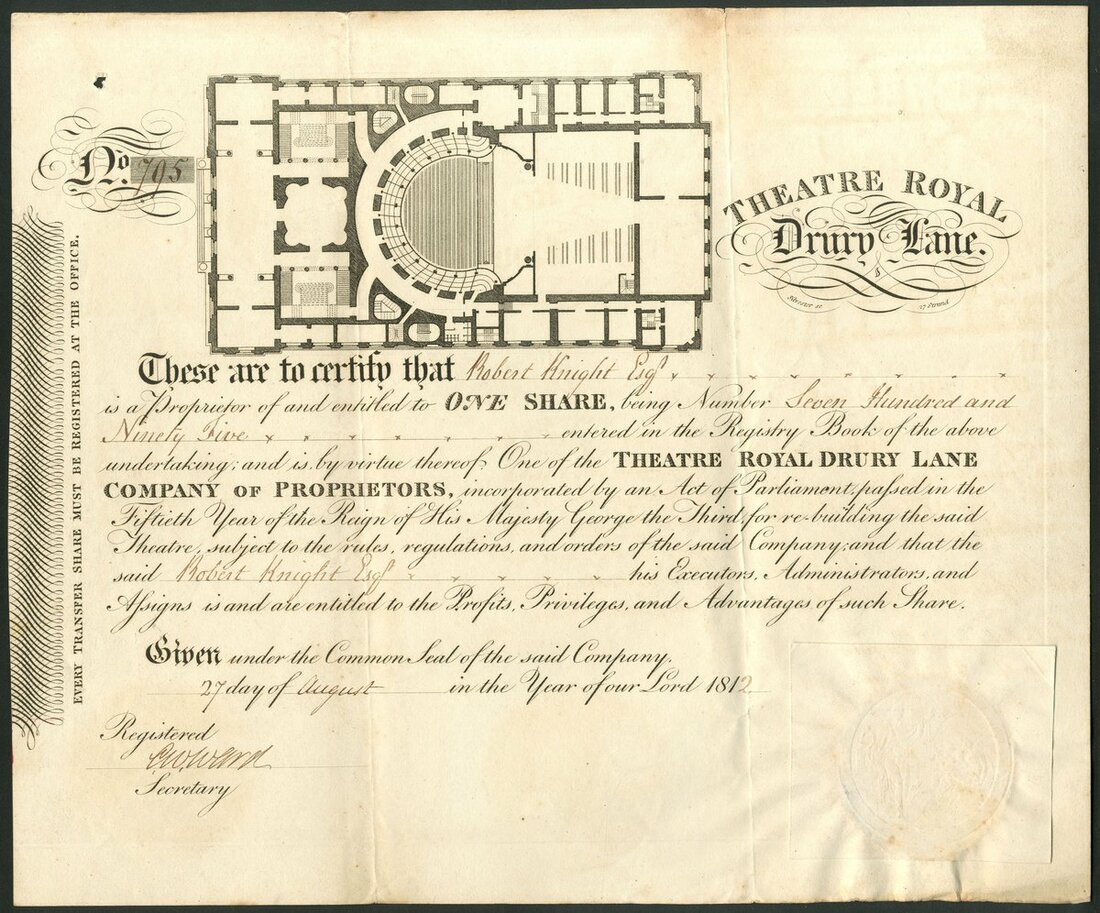 No. 795
THEATRE ROYAL
Drury Lane.
EVERY TRANSFER SHARE MUST BE REGISTERED AT THE OFFICE.
These are to certify that Robert Knight Esqr
is a Proprietor of and entitled to ONE SHARE, being Number Seven Hundred and
Ninety Five entered in the Registry Book of the above
undertaking; and is by virtue thereof One of the THEATRE ROYAL DRURY LANE
COMPANY OF PROPRIETORS, incorporated by an Act of Parliament, passed in the
Fiftieth Year of the Reign of His Majesty George the Third for re-building the said
Theatre, subject to the rules, regulations, and orders of the said Company; and that the
said Robert Knight Esqr his Executors, Administrators, and
Assigns is and are entitled to the Profits, Privileges, and Advantages of such Share.
Given under the Common Seal of the said Company.
27 day of August in the Year of our Lord 1812
Registered
C.W. Ward
Secretary